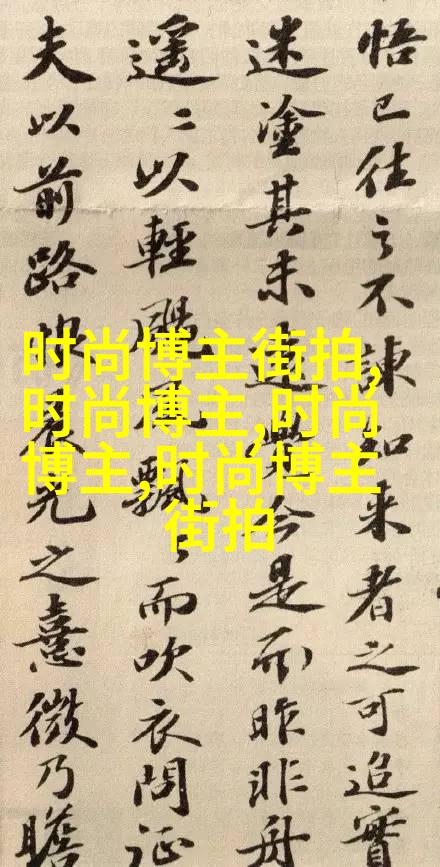 悟已往之不諫知来者之可追實
迷塗其未遠覺今是而昨非舟
遥〻以輕颺風飄〻而吹衣問征
夫以前路恨晨光之熹微乃瞻
时尚博主街拍,
时尚博主,时尚
博主,时尚博主
街拍